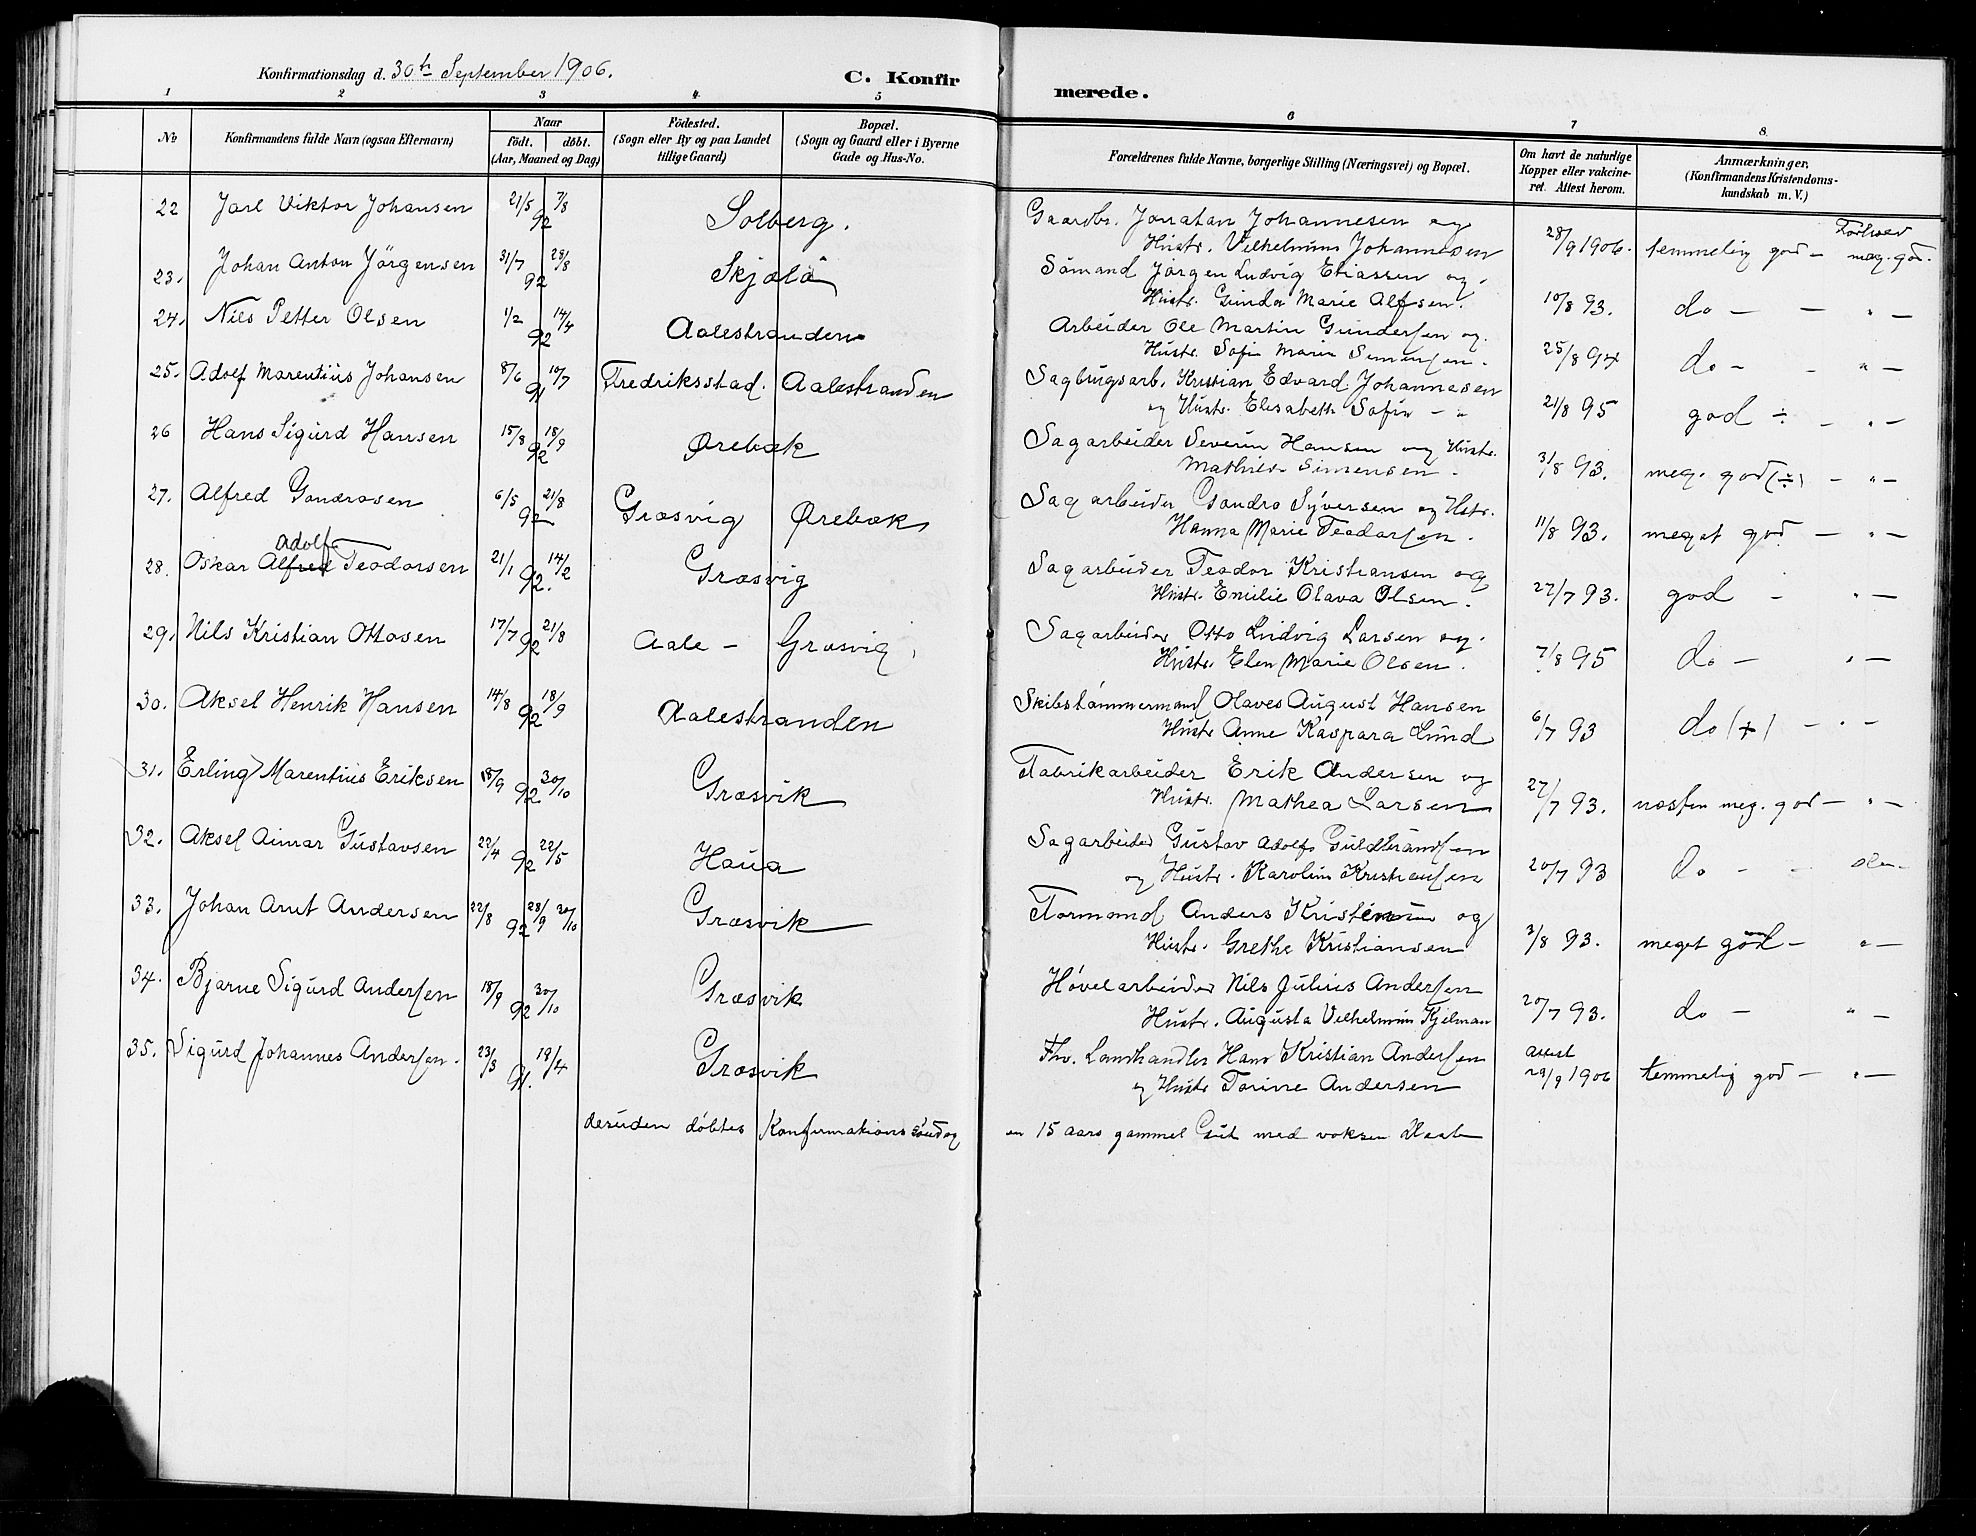 Konfirmationsdag d. 30th September 1906.
C. Konfir
merede.
1 2 3 4 5 6 7 8
No
Konfirmandens fulde Navn (ogsaa Efternavn)
Naar
födt. döbt.
(Aar, Maaned og Dag)
Födested.
(Sogn eller By og paa Landet
tillige Gaard)
Bopæl.
(Sogn og Gaard eller i Byerne
Gade og Hus-No.
Forældrenes fulde Navne, borgerlige Stilling (Næringsvei) og Bopæl.
Om havt de naturlige
Kopper eller vakcine-
ret. Attest herom.
Anmærkninger,
(Konfirmandens Kristendoms-
kundskab m. V.)
22 Jarl Viktor Johansen 21/5 92 7/8 Solberg. Gaardbr. Jonatan Johannesen og
Hustr. Vilhelmine Johannesen 28/9 1906. temmelig god — Forhold meg. god.
23. Johan Anton Jörgensen 31/7 92 28/8 Skjælö Sömand Jörgen Ludvig Eliassen og
Hustr. Gunda Marie Alfsen. 10/8 93. do — — " —
24. Nils Petter Olsen 1/2 92 14/4 Aalestranden Arbeider Ole Martin Gundersen og
Hustr. Sofie Marie Simensen. 25/8 94 do — - " —
25. Adolf Marentius Johansen 8/6 91 10/7 Fredriksstad. Aalestranden Sagbrugsarb. Kristian Edvard Johannesen
og Hustr. Elisabeth Sofie — " 21/8 95 god ÷ — " —
26 Hans Sigurd Hansen 15/8 92 18/9 Ørebæk Sagarbeider Severin Hansen og Hustr.
Mathilde Simensen. 31/8 93. meg. god (÷) — " —
27. Alfred Gandrosen 6/5 92 21/8 Græsvig Ørebæk Sagarbeider Gandro Syversen og Hstr.
Hanna Marie Teodorsen. 11/8 93. meget god — " —
28. Oskar Alfred Adolf Teodorsen 21/1 92. 14/2 Græsvig Sagarbeider Teodor Kristiansen og
Hustr. Emilie Olava Olsen. 27/7 93. god — " —
29. Nils Kristian Ottosen 17/7 92 21/8 Aale — Græsvig Sagarbeider Otto Ludvig Larsen og
Hustr. Elen Marie Olsen. 7/8 95 do — " —
30. Aksel Henrik Hansen 14/8 92 18/9 Aalestranden Skibstömmermand Olaves August Hansen
Hustr Anne Kaspara Lund 6/7 93 do (+) — " —
31. Erling Marentius Eriksen 18/9 92 30/10 Græsvik Fabrikarbeider Erik Andersen og
Hustr. Mathea Larsen 27/7 93. næsten meg. god — " —
32. Aksel Aimar Gustavsen 22/4 92 22/5 Haua Sagarbeider Gustav Adolf Guldbrandsen
og Hustr. Karoline Kristiansen 20/7 93 do — —
33. Johan Arnt Andersen 22/8 92 28/9 30/10 Græsvik Formand Anders Kristensen og
Hustr. Grethe Kristiansen 3/8 93. meget god — " —
34. Bjarne Sigurd Andersen 18/9 92 30/10 Græsvik Hövelarbeider Nils Julius Andersen
Hustr. Augusta Vilhelmine Kjelman 20/7 93. do — " —
35. Sigurd Johannes Andersen. 23/3 91. 18/4 Græsvik Fhv. Landhandler Hans Kristian Andersen
og Hustr Torine Andersen attest 29/9 1906 temmelig god — " —
desuden döbtes Konfirmationssöndag en 15 aars gammel Gut med voksen Daab